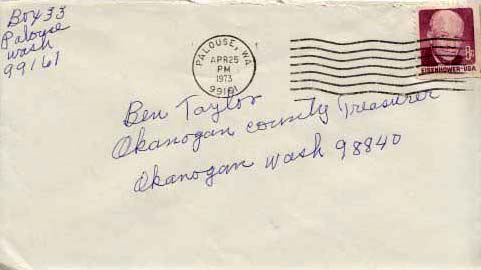 Box 33
Palouse
Wash
99161
PALOUSE, WA
APR 25
PM
1973
99161
8¢
EISENHOWER·USA
Ben Taylor
Okanogan county Treasurer
Okanogan Wash 98840